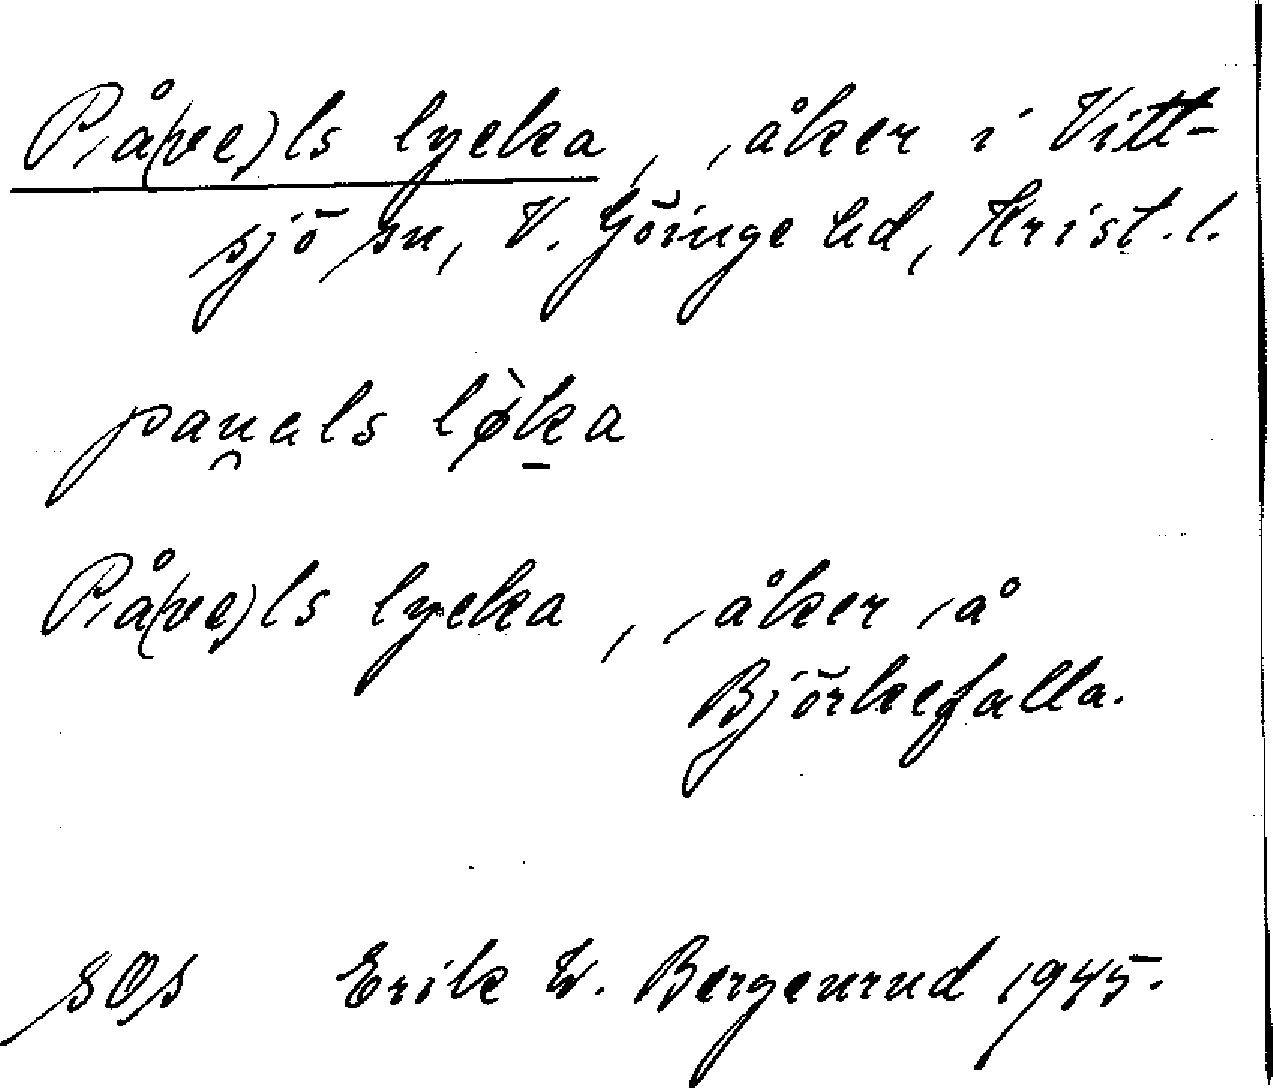 På(ve)ls lycka, åker i Vitt-
sjö sn, V. Göinge hd, Krist. l.
pau̯als lø̀k̠a
På(ve)ls lycka, åker å
Björkefalla.
SOS Erik W. Bergenrud 1945.